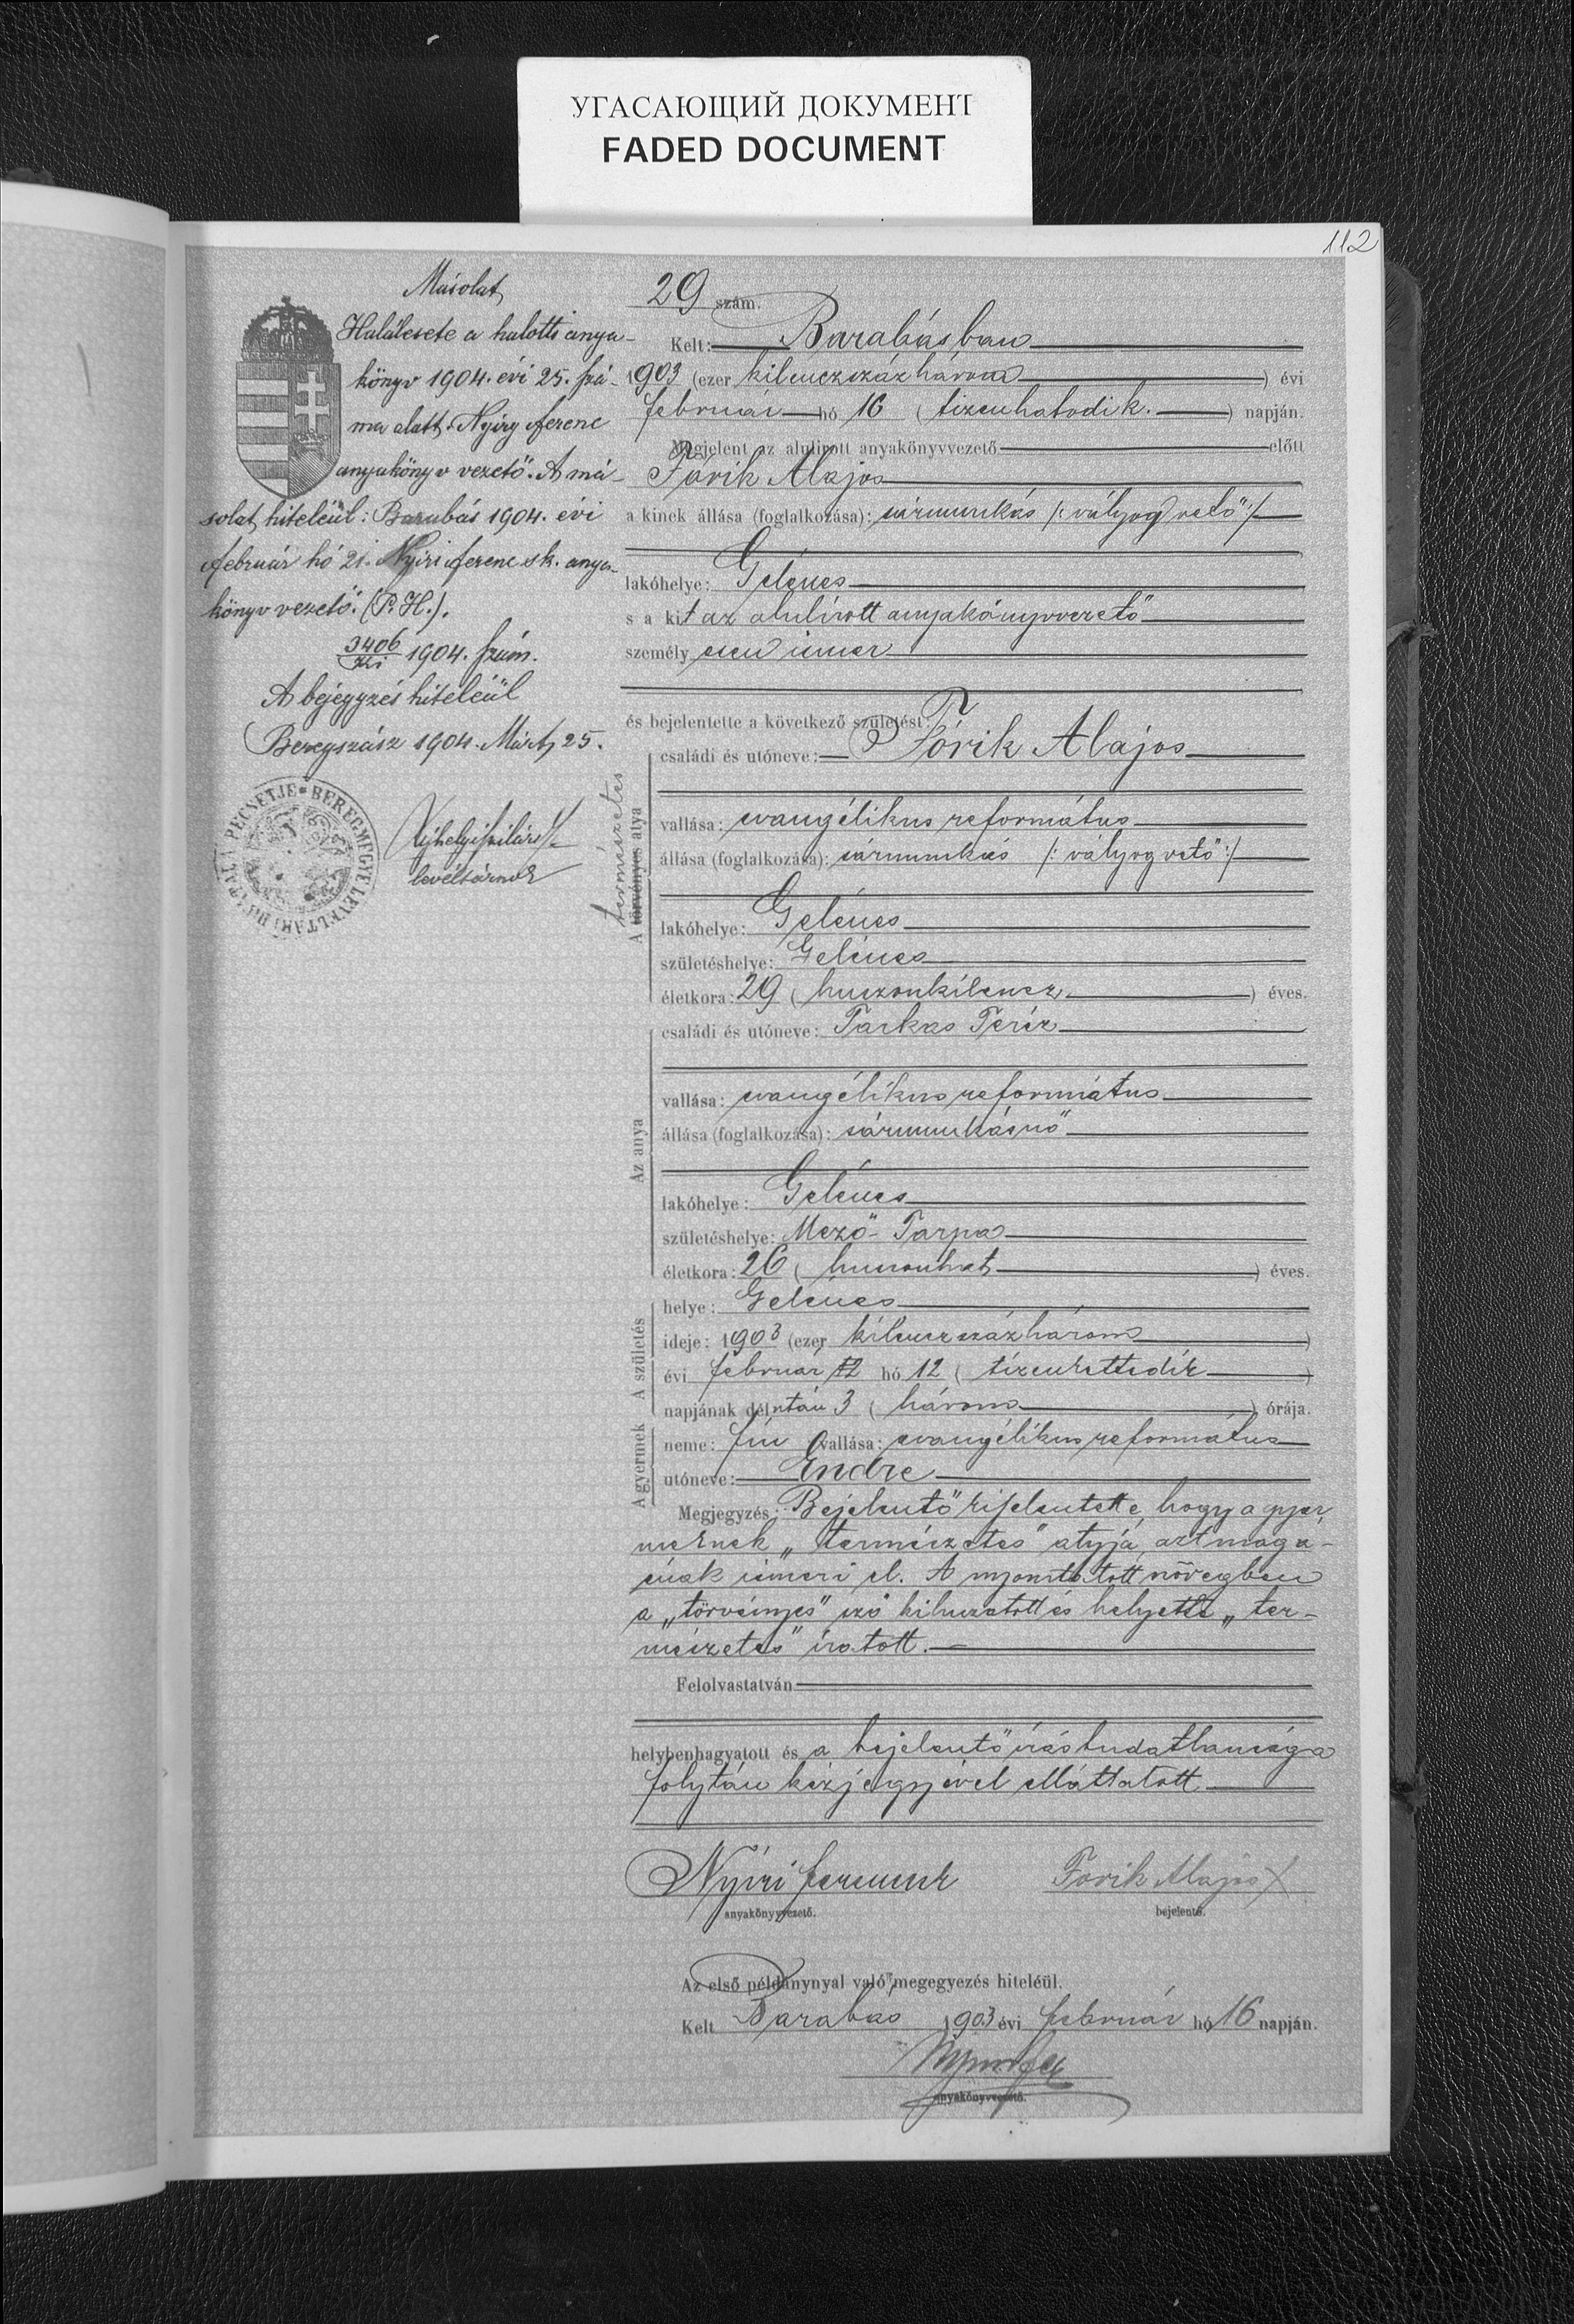 УГАСАЮЩИЙ ДОКУМЕНТ
FADED DOCUMENT
112
Másolat
Halálesete a halotti anya-
könyv 1904. évi 25. szá-
ma alatt. Nyiry Ferenc
anyakönyvvezető. A má-
solat hiteléül: Barabás 1904. évi
február hó 21. Nyiri Ferenc sk. anya-
könyvvezető. (P.H.).
3406
1904. szám.
A bejegyzés hiteléül
Beregszász 1904. Márcz 25.
levéltárnok
29 szám.
Kelt: Barabásban
1903 (ezer kilenczszázhárom) évi
február hó 16 (tizenhatodik.) napján.
Megjelent az alulirott anyakönyvvezető előtt
Fórik Alajos
a kinek állása (foglalkozása): sármunkás /: vályogvető :/
lakóhelye: Gelénes
s a kit az alulirott anyakönyvvezető
személyesen ismer
és bejelentette a következő születést:
A törvényes atya
természetes
családi és utóneve: Fórik Alajos
vallása: evangélikus református
állása (foglalkozása): sármunkás /: vályogvető :/
lakóhelye: Gelénes
születéshelye: Gelénes
életkora: 29 (huszonkilencz) éves.
Az anya
családi és utóneve: Farkas Teréz
vallása: evangélikus református
állása (foglalkozása): sármunkásnő
lakóhelye: Gelénes
születéshelye: Mező-Tarpa
életkora: 26 (huszonhat) éves.
A születés
helye: Gelénes
ideje: 1903 (ezer kilenczszázhárom)
évi február 12 hó 12 (tizenkettedik)
napjának délután 3 (három) órája.
A gyermek
neme: fiu vallása: evangélikus református
utóneve: Endre
Megjegyzés: Bejelentő kijelentette, hogy a gyer
meknek „természetes" atyja, azt magá-
énak ismeri el. A nyomtatott szövegben
a „törvényes" szó kihuzatott és helyette „ter-
mészetes" iratott.
Felolvastatván
helybenhagyatott és a bejelentő irástudatlansága
folytán kézjegyével elláttatott
Nyiri Ferencz
anyakönyvvezető.
Fórik Alajos X
bejelentő.
Az első példánynyal való megegyezés hiteléül.
Kelt Barabás 1903 évi február hó 16 napján.
anyakönyvvezető.